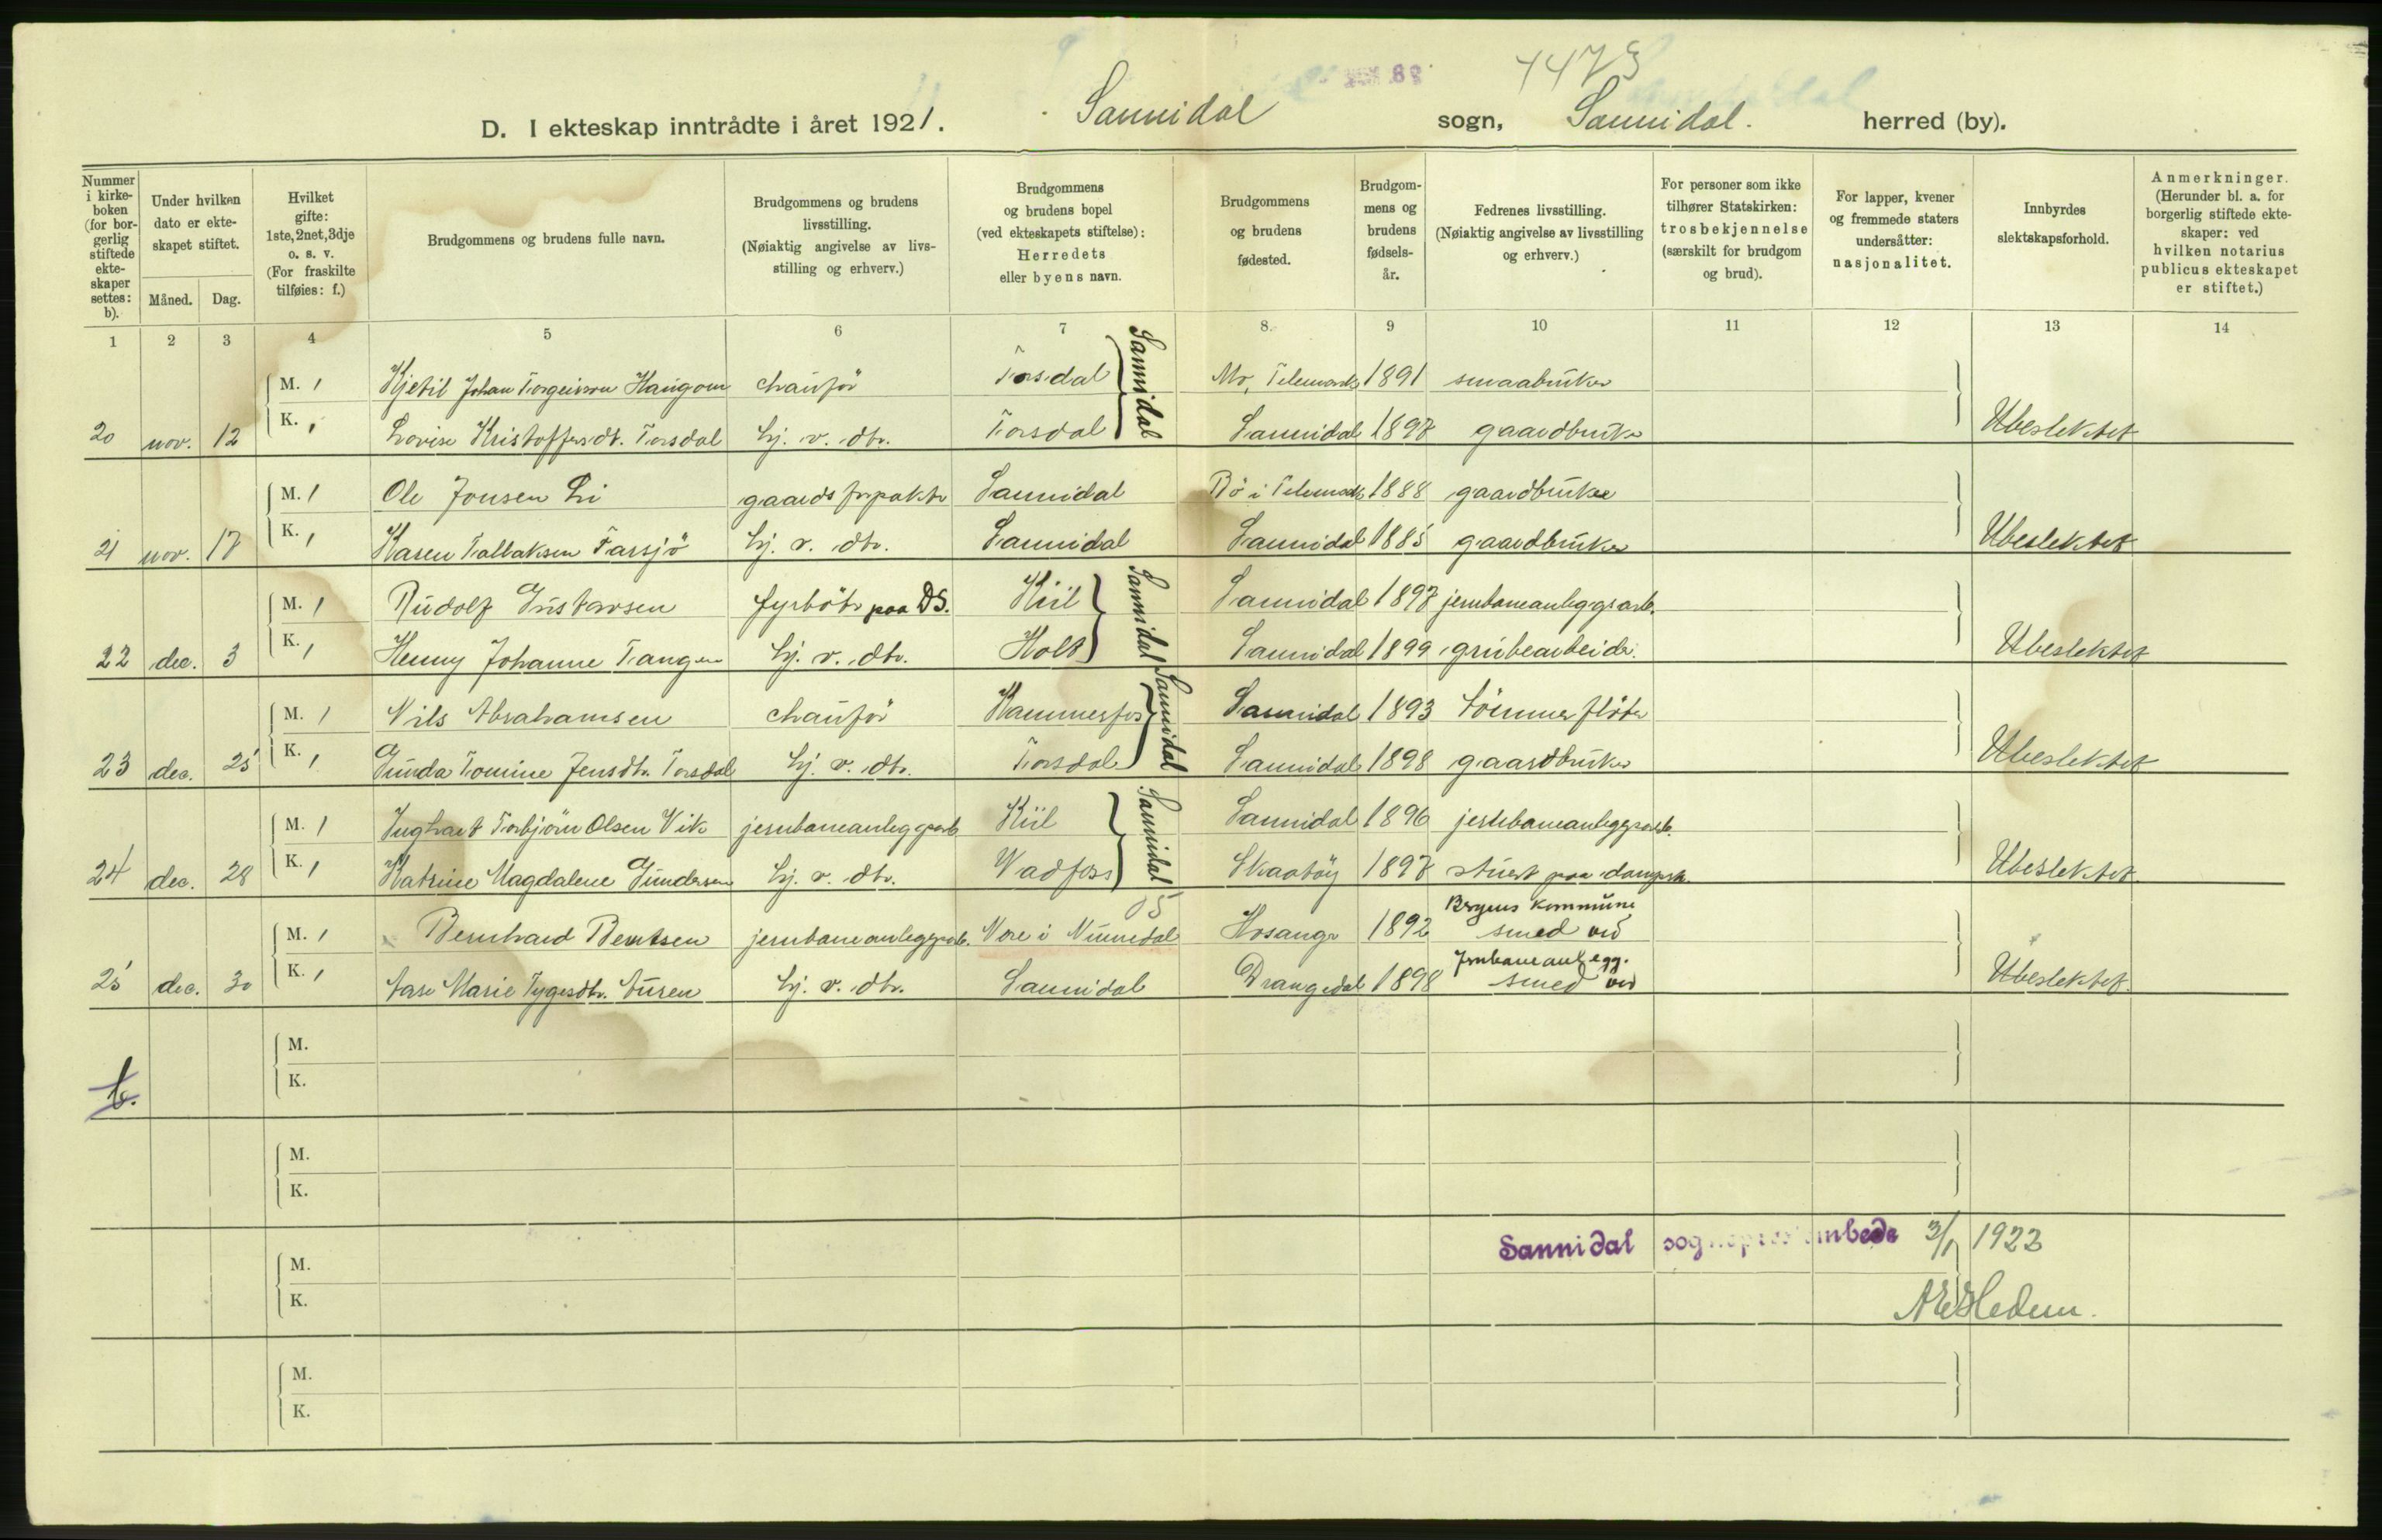 4473
D. I ekteskap inntrådte i året 1921. Sannidal sogn, Sannidal. herred (by).
Nummer i kirkeboken (for borgerlig stiftede ekteskaper settes: b).
Under hvilken dato er ekteskapet stiftet.
Måned. Dag.
Hvilket gifte: 1ste, 2net, 3dje o. s. v. (For fraskilte tilføies: f.)
Brudgommens og brudens fulle navn.
Brudgommens og brudens livsstilling. (Nøiaktig angivelse av livsstilling og erhverv.)
Brudgommens og brudens bopel (ved ekteskapets stiftelse): Herredets eller byens navn.
Brudgommens og brudens fødested.
Brudgommens og brudens fødselsår.
Fedrenes livsstilling. (Nøiaktig angivelse av livsstilling og erhverv.)
For personer som ikke tilhører Statskirken: trosbekjennelse (særskilt for brudgom og brud).
For lapper, kvener og fremmede staters undersåtter: nasjonalitet.
Innbyrdes slektskapsforhold.
Anmerkninger. (Herunder bl. a. for borgerlig stiftede ekteskaper: ved hvilken notarius publicus ekteskapet er stiftet.)
1 2 3 4 5 6 7 8. 9 10 11 12 13 14
M. 1 Kjetil Johan Torgeirson Haugom chauför Torsdal Sannidal Mo, Telemark 1891 smaabruker
20 nov. 12 K. 1 Lovise Kristoffersdt. Torsdal hj. v. dtr. Torsdal Sannidal 1897 gaardbruker Ubeslektet
M. 1 Ole Jonsen Li gaardsforpakter Sannidal Bö i Telemark 1888 gaardbruker
21 nov. 17 K. 1 Karen Tallaksen Farsjö hj. v. dtr. Sannidal Sannidal 1885 gaardbruker Ubeslektet
M. 1 Rudolf Gustavsen fyrböter paa DS. Kiil Sannidal Sannidal 1897 jernbaneanleggsarb.
22 dec. 3 K. 1 Henny Johanne Tangen hj. v. dtr. Holt Sannidal 1899 grubearbeider. Ubeslektet
M. 1 Nils Abrahamsen chauför Kammerfos Sannidal Sannidal 1893 tömmerflöter
23 dec. 25 K. 1 Gunda Tomine Jensdtr. Torsdal hj. v. dtr. Torsdal Sannidal 1898 gaardbruker Ubeslektet
M. 1 Inghart Torbjörn Olsen Vik jernbaneanleggsarb. Kiil Sannidal Sannidal 1896 jernbaneanleggsarb.
24 dec. 28 K. 1 Katrine Magdalene Gundersen hj. v. dtr. Vadfoss Skaatöy 1897 stuert paa dampsk. Ubeslektet
Bergens kommune
M. 1 Bernhard Berntsen jernbaneanleggsarb. Nore i Numedal Hosanger 1892 smed ved
Jernbaneanlegg.
25 dec. 30 K. 1 Aase Marie Tygesdtr. Auren hj. v. dtr. Sannidal Drangedal 1898 smed ved Ubeslektet
M.
K.
b.
M.
K.
M. Sannidal sogneprestembede 3/1 1922
K.
M.
K.